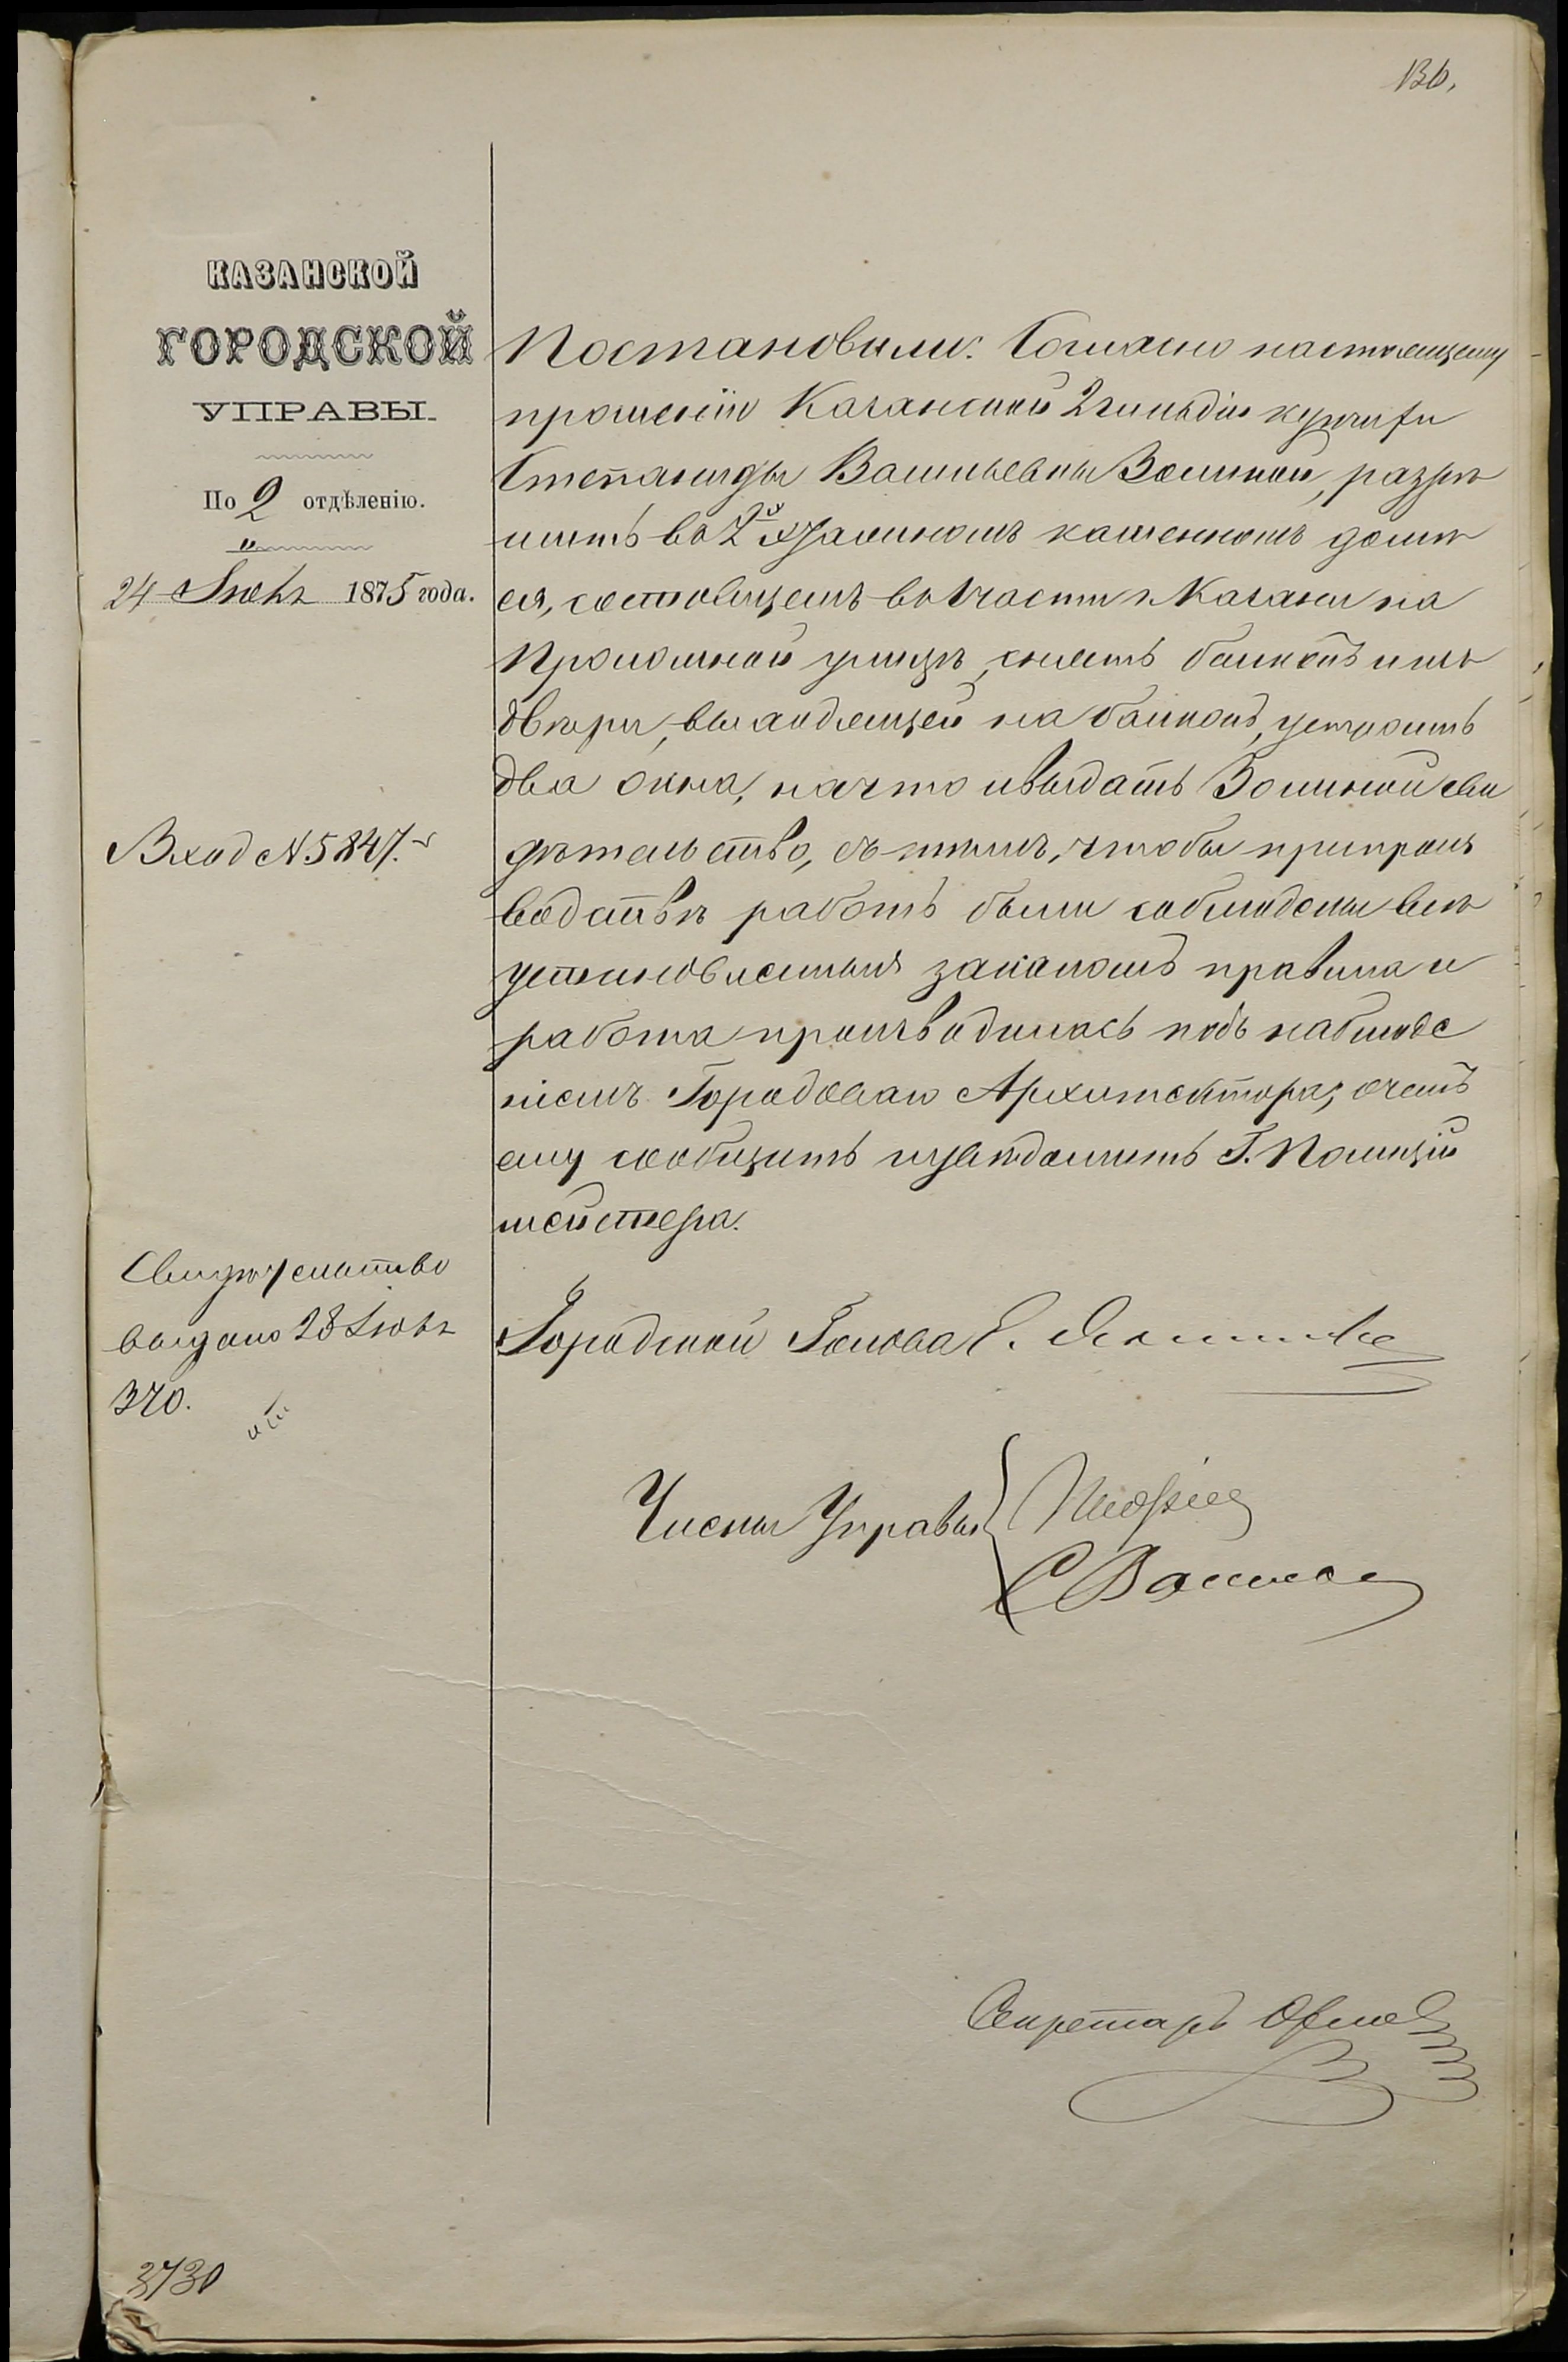 136.
КАЗАНСКОЙ
ГОРОДСКОЙ
УПРАВЫ.
По 2 отдѣленію.
24 Іюня 1875 года.
Вход №5847.
Свидѣтельство
выдано 28 Іюня
370.
Постановили: Согласно настоящему
прошенію Казанской 2 гильдіи купчихи
Степаниды Васильевны Золиной, разрѣ
шить въ 2й этажномъ каменномъ домѣ
ея, состоящемъ въ 1 части г. Казани на
Проломной улицѣ, снять балконъ и изъ
двери, выходящей на балконъ, устроить
два окна, на что и выдать Золиной сви
дѣтельство, съ тѣмъ, чтобы при произ
водствѣ работъ были соблюдены всѣ
установленныя закономъ правила и
работа производилась подъ наблюде
ніемъ Городоваго Архитектора, о чемъ
ему сообщить и увѣдомить Г. Полицій
мейстера.
Городской Голова Е.
Члены Управы
Секретарь
3730